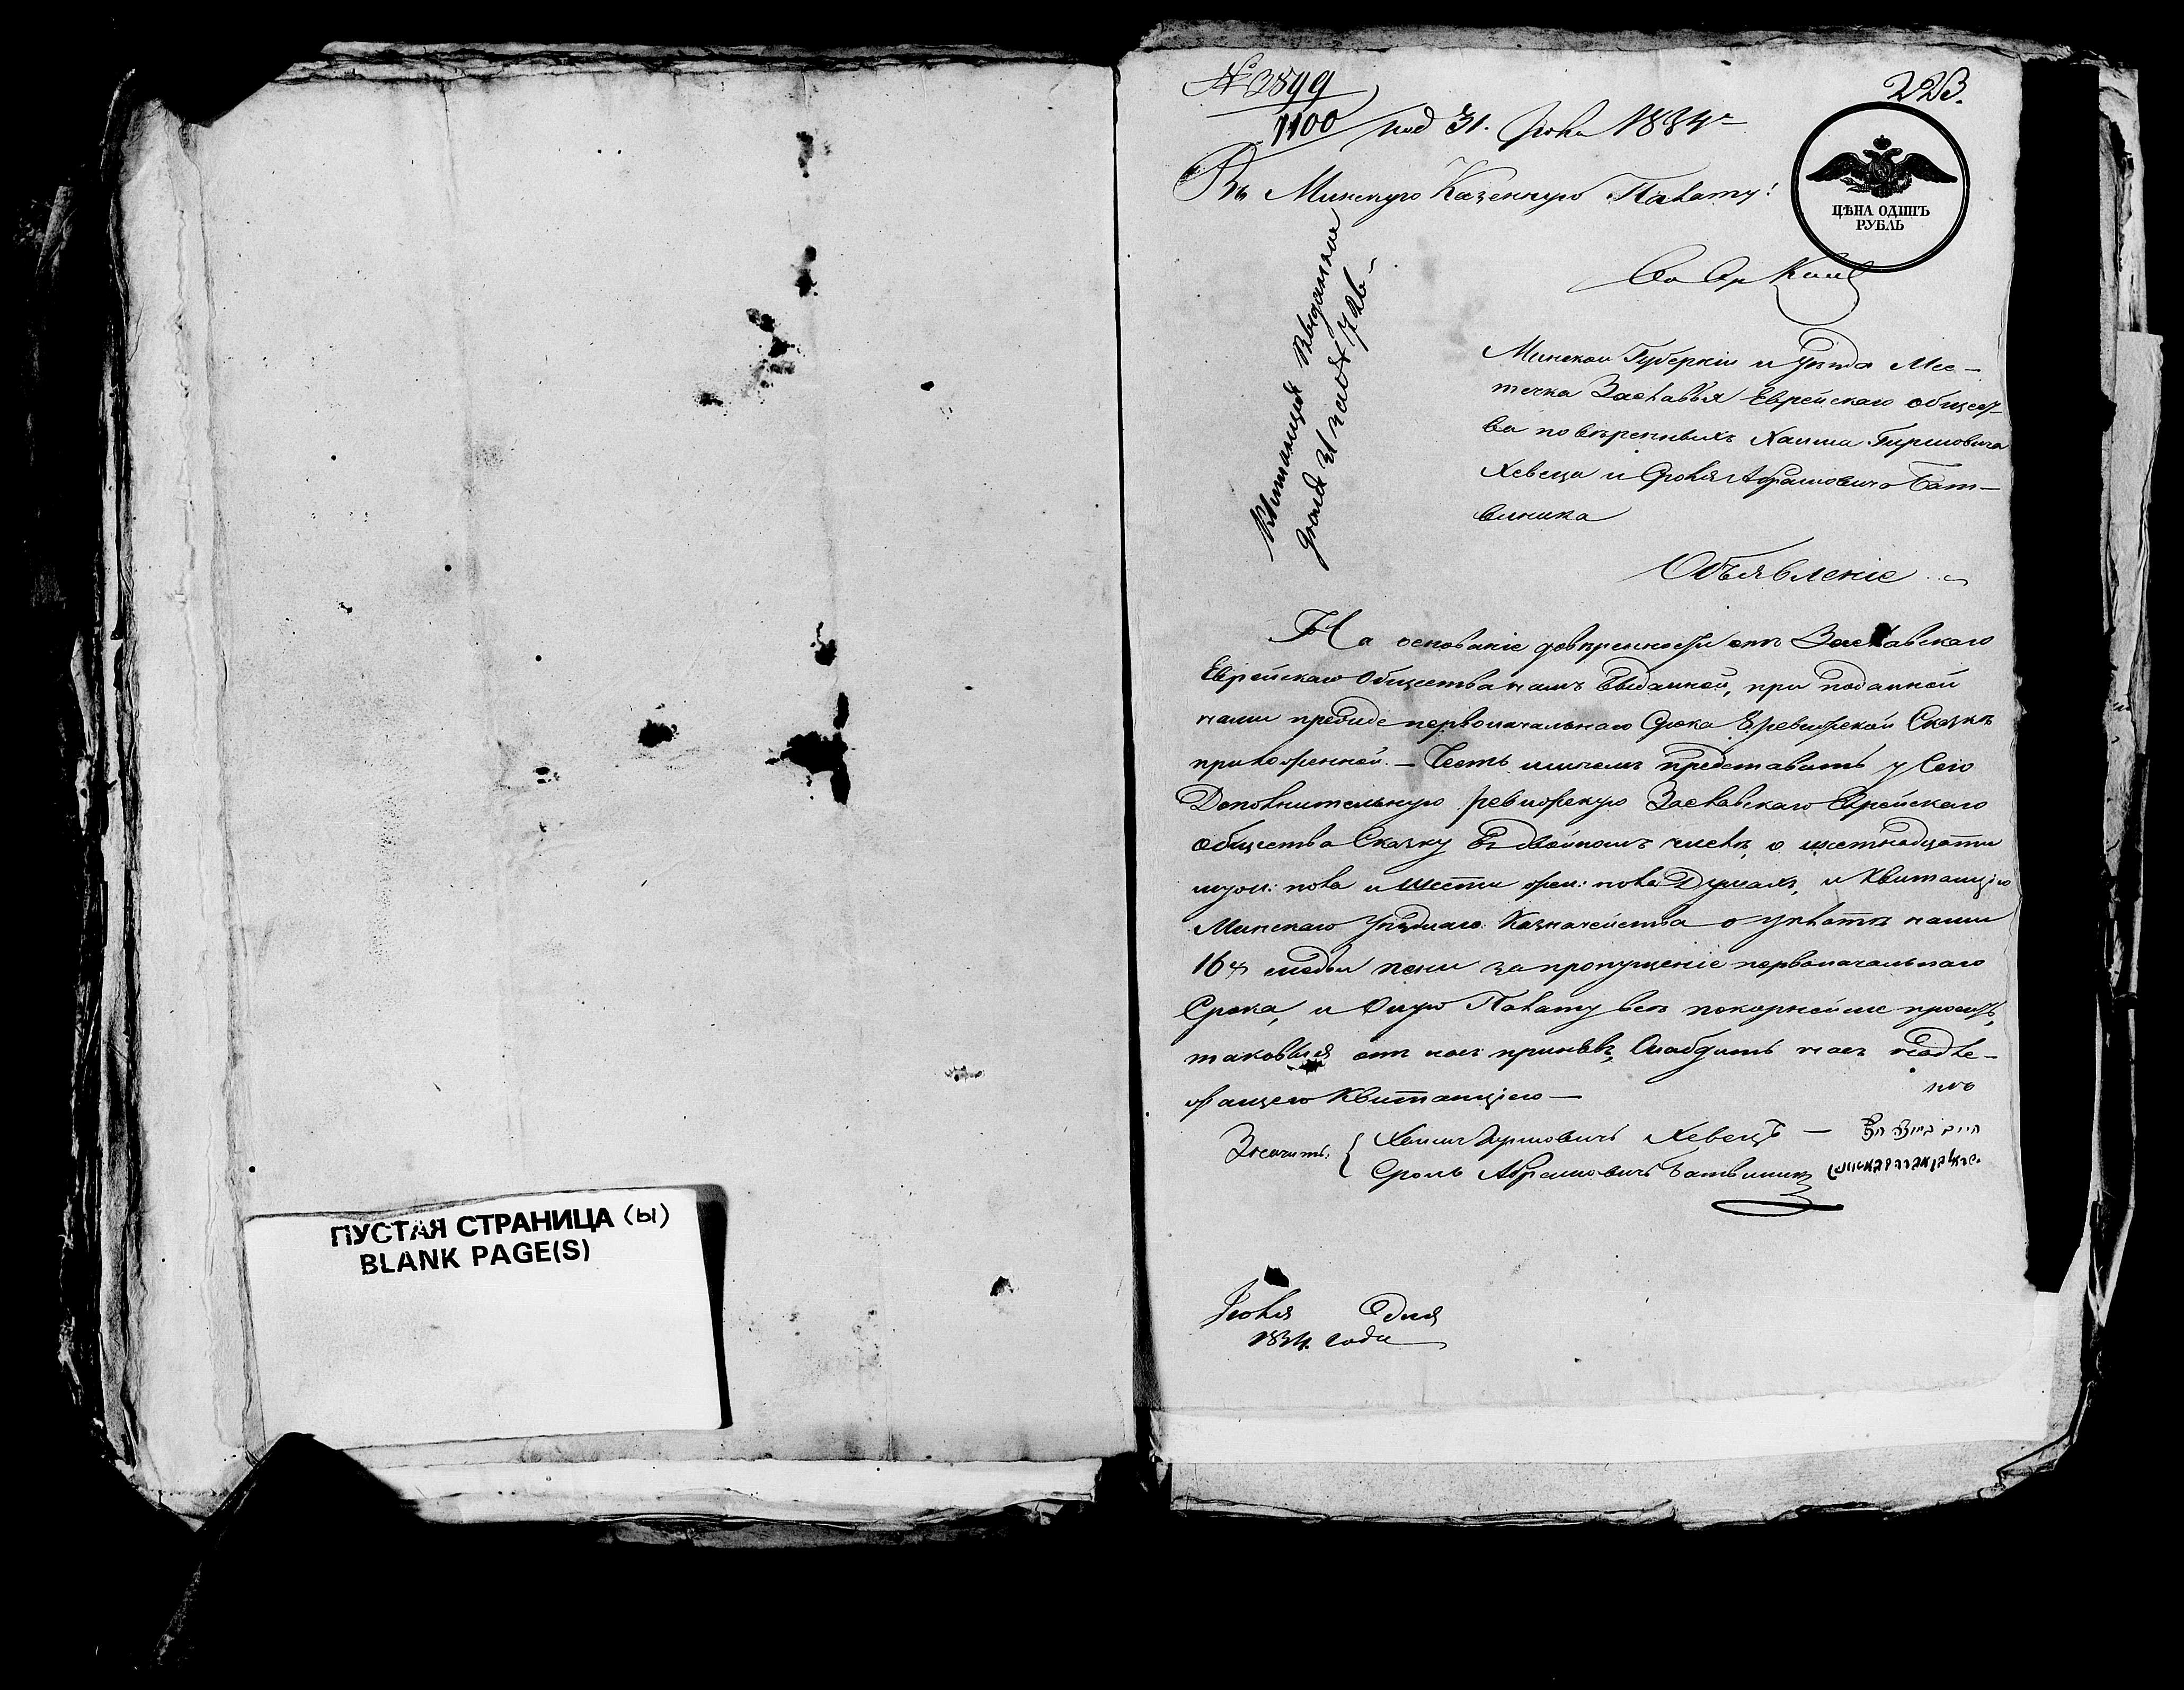 ПУСТАЯ СТРАНИЦА (ы)
BLANK PAGE(S)
№ 3899
1100 под 31. Июля 1834 г
223.
Въ Минскую Казенную Палату!
ЦѢНА ОДИНЪ
РУБЛЬ
Квитанція выданная
Іюля 31 за № 726
Минской Губерніи и Уѣзда Мес-
течка Заславья Еврейскаго общест-
ва повѣренныхъ Хаима Гиршовича
Хевеца и Сроля Абрамовича Бат-
виника
Объявленіе
На основаніе довѣренности отъ Заславскаго
Еврейскаго Общества намъ выданной, при поданной
нами первоначальнаго Срока 8 ревизской Сказкѣ
приложенной. — Честь имѣемъ представить у Сего
Дополнительную ревизскую Заславскаго Еврейскаго
общества Сказку въ двойномъ числѣ, о шестнадцати
муж: пола и шести жен: пола Душахъ, и Квитанцію
Минскаго Уѣзднаго Казначейства о уплатѣ нами
164 пени за пропущеніе первоначальнаго
Срока, и Оную Палату всепокорнейше просить,
таковыя отъ насъ принявъ, Снабдить насъ надле-
жащею Квитанціею —
Хаимъ Гиршовичъ Хевецъ —
Сроль Абрамовичъ Батвиникъ
Іюля дня
1834 года